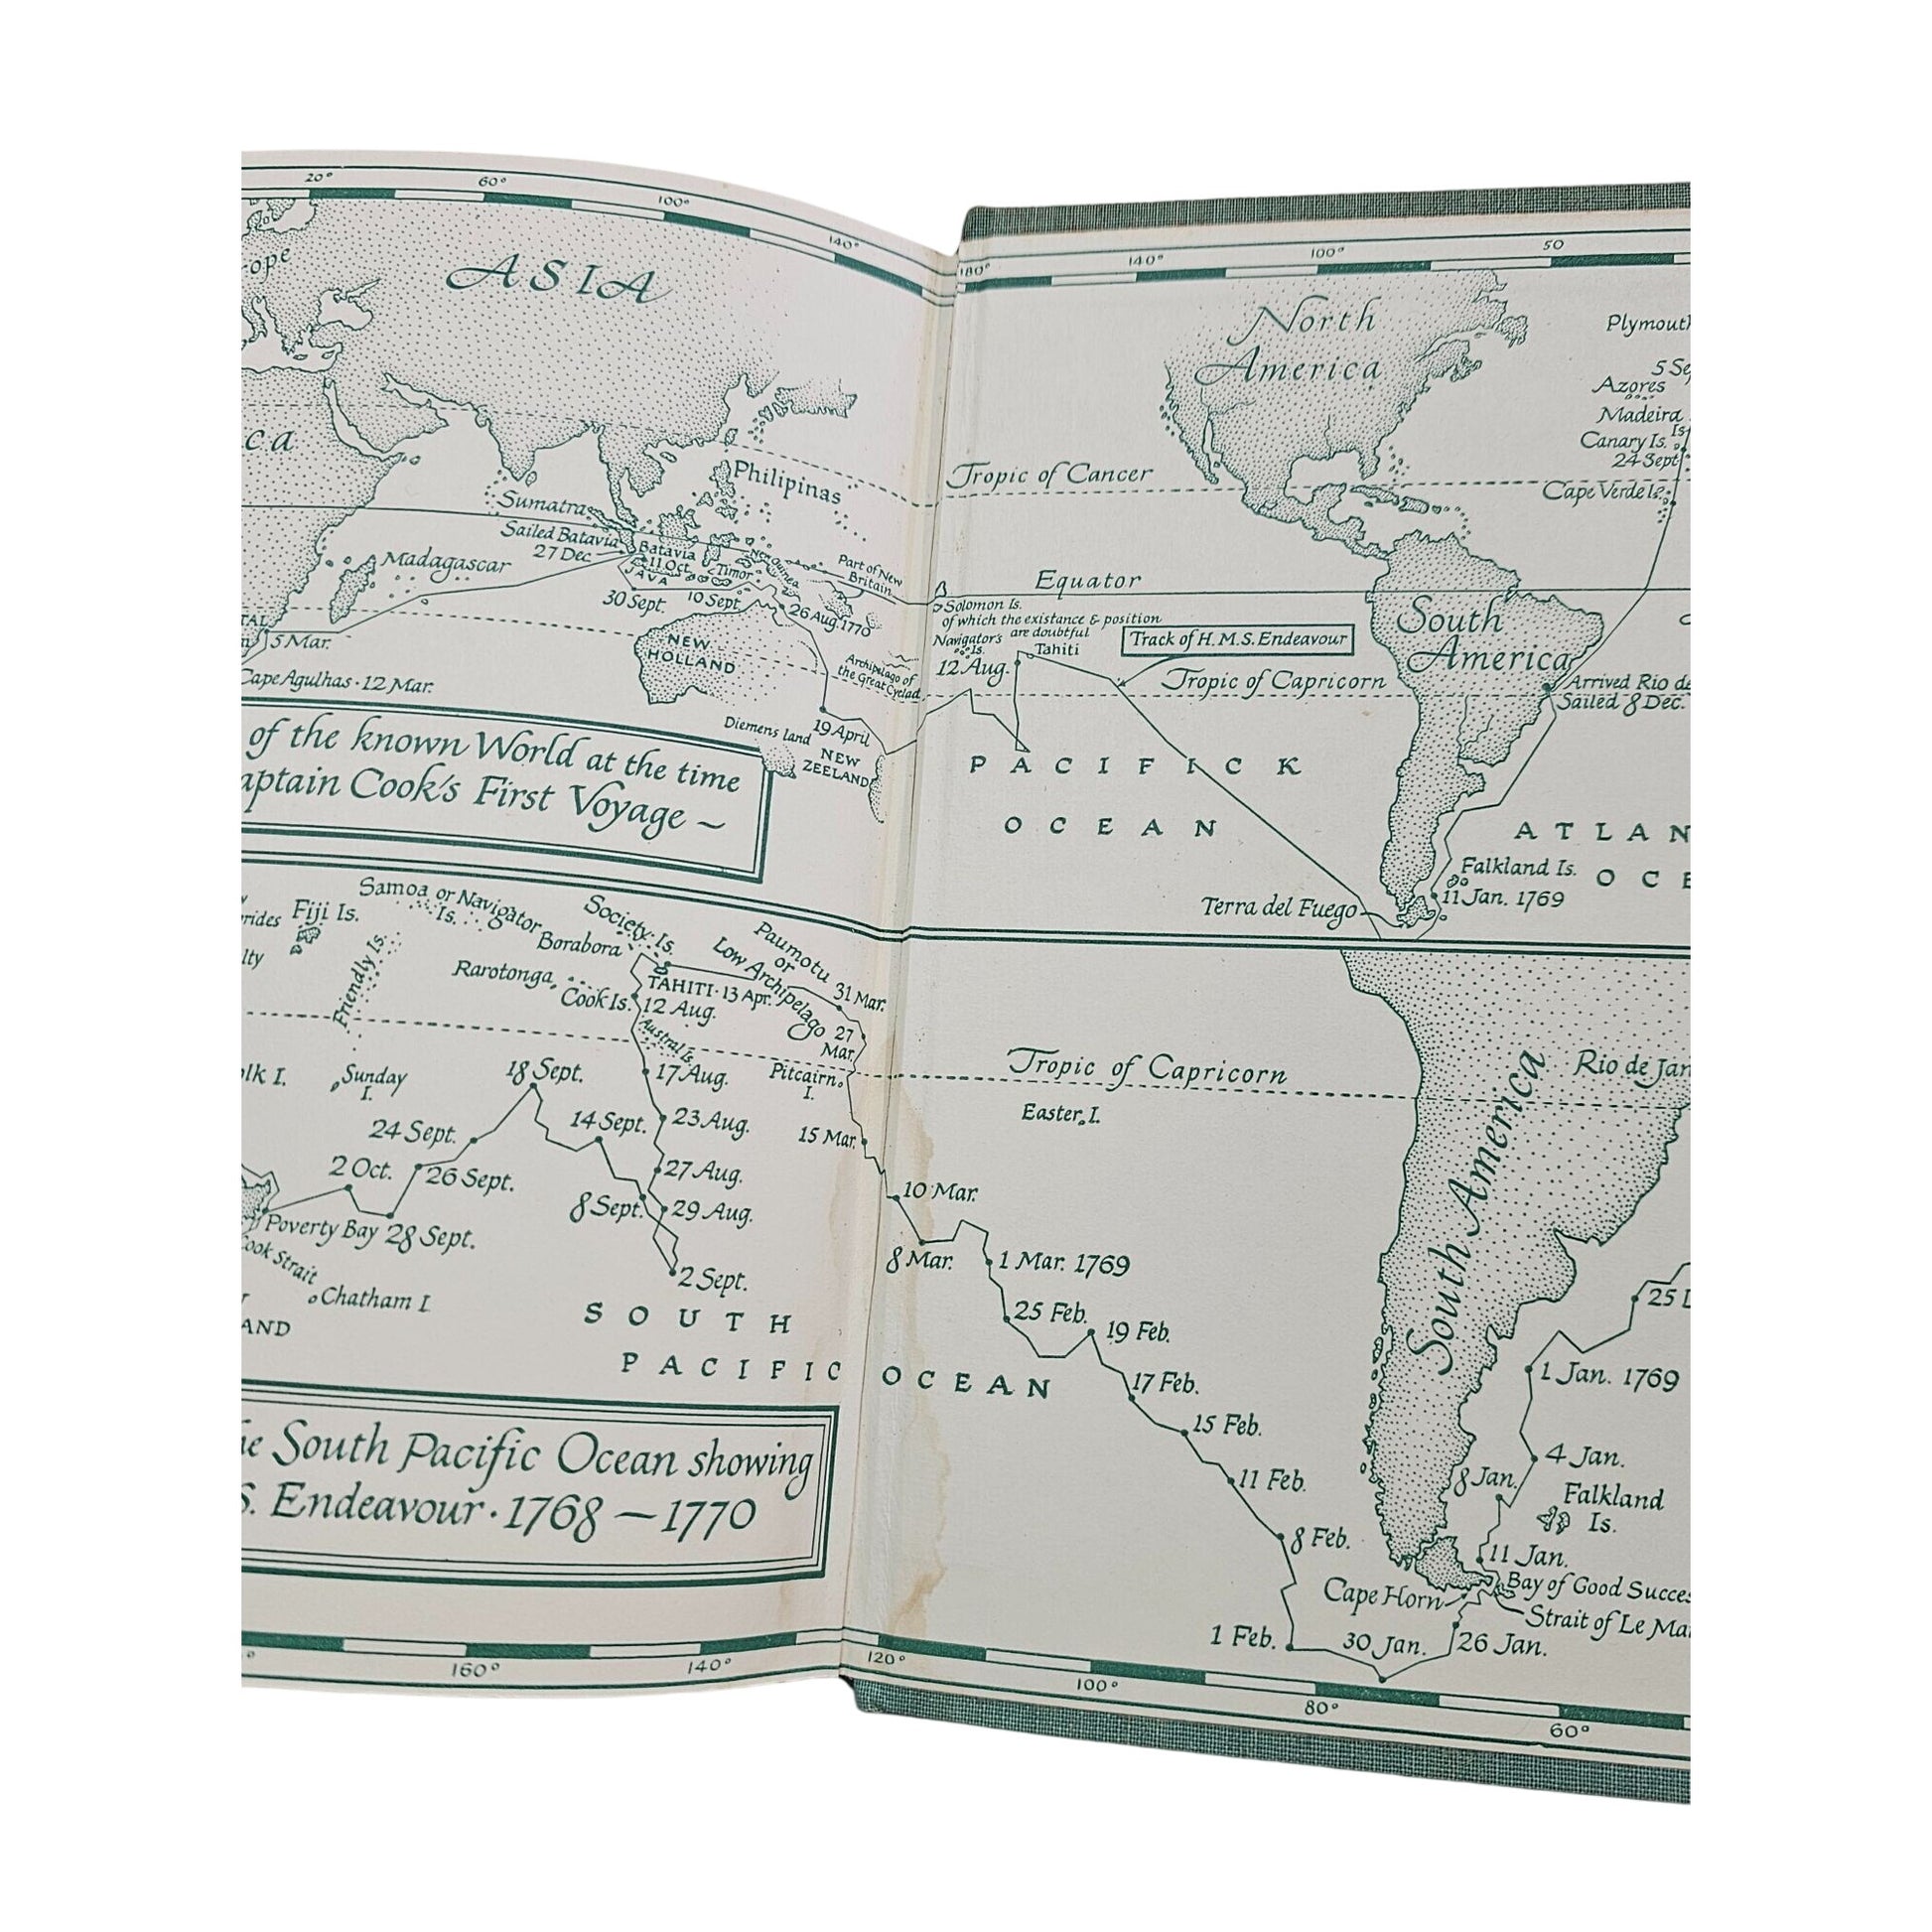 20°
60°
100°
140°
180°
140°
100°
50
ASIA
ope
ca
Philipinas
Sumatra
Sailed Batavia
27 Dec
Batavia
11 Oct.
JAVA
Timor
New Guinea
Part of New
Britain
Madagascar
30 Sept.
10 Sept.
26 Aug. 1770
TAL
5 Mar.
Cape Agulhas · 12 Mar.
NEW
HOLLAND
Archipelago of
the Great Cyclad
Diemens land
19 April
NEW
ZEELAND
of the known World at the time
aptain Cook's First Voyage ~
North
America
Plymouth
5 Sep
Azores
Madeira
Is.
Canary Is.
24 Sept
Cape Verde Is.
Tropic of Cancer
Equator
Solomon Is.
of which the existance & position
are doubtful
Navigator's
Is.
Tahiti
12 Aug.
Track of H.M.S. Endeavour
Tropic of Capricorn
South
America
Arrived Rio de
Sailed 8 Dec.
PACIFICK
OCEAN
ATLAN
OCE
Falkland Is.
11 Jan. 1769
Terra del Fuego
rides
Fiji Is.
lty
Samoa or Navigator
Is.
Friendly Is.
Society Is.
Borabora
Rarotonga
Cook Is.
TAHITI · 13 Apr.
12 Aug.
Paumotu
or
Low Archipelago
31 Mar.
27
Mar.
Austral Is.
lk I.
Sunday
I.
18 Sept.
17 Aug.
Pitcairn
I.
24 Sept.
14 Sept.
23 Aug.
15 Mar.
2 Oct.
26 Sept.
27 Aug.
8 Sept.
29 Aug.
Poverty Bay
28 Sept.
Cook Strait
Chatham I.
2 Sept.
AND
SOUTH
PACIFIC OCEAN
he South Pacific Ocean showing
S. Endeavour · 1768 – 1770
Tropic of Capricorn
Easter I.
South America
Rio de Jan
10 Mar.
8 Mar.
1 Mar. 1769
25 Feb.
19 Feb.
17 Feb.
15 Feb.
11 Feb.
8 Feb.
1 Feb.
30 Jan.
26 Jan.
25 D
1 Jan. 1769
4 Jan.
8 Jan.
Falkland
Is.
11 Jan.
Bay of Good Succes
Cape Horn
Strait of Le Mai
160°
140°
120°
100°
80°
60°